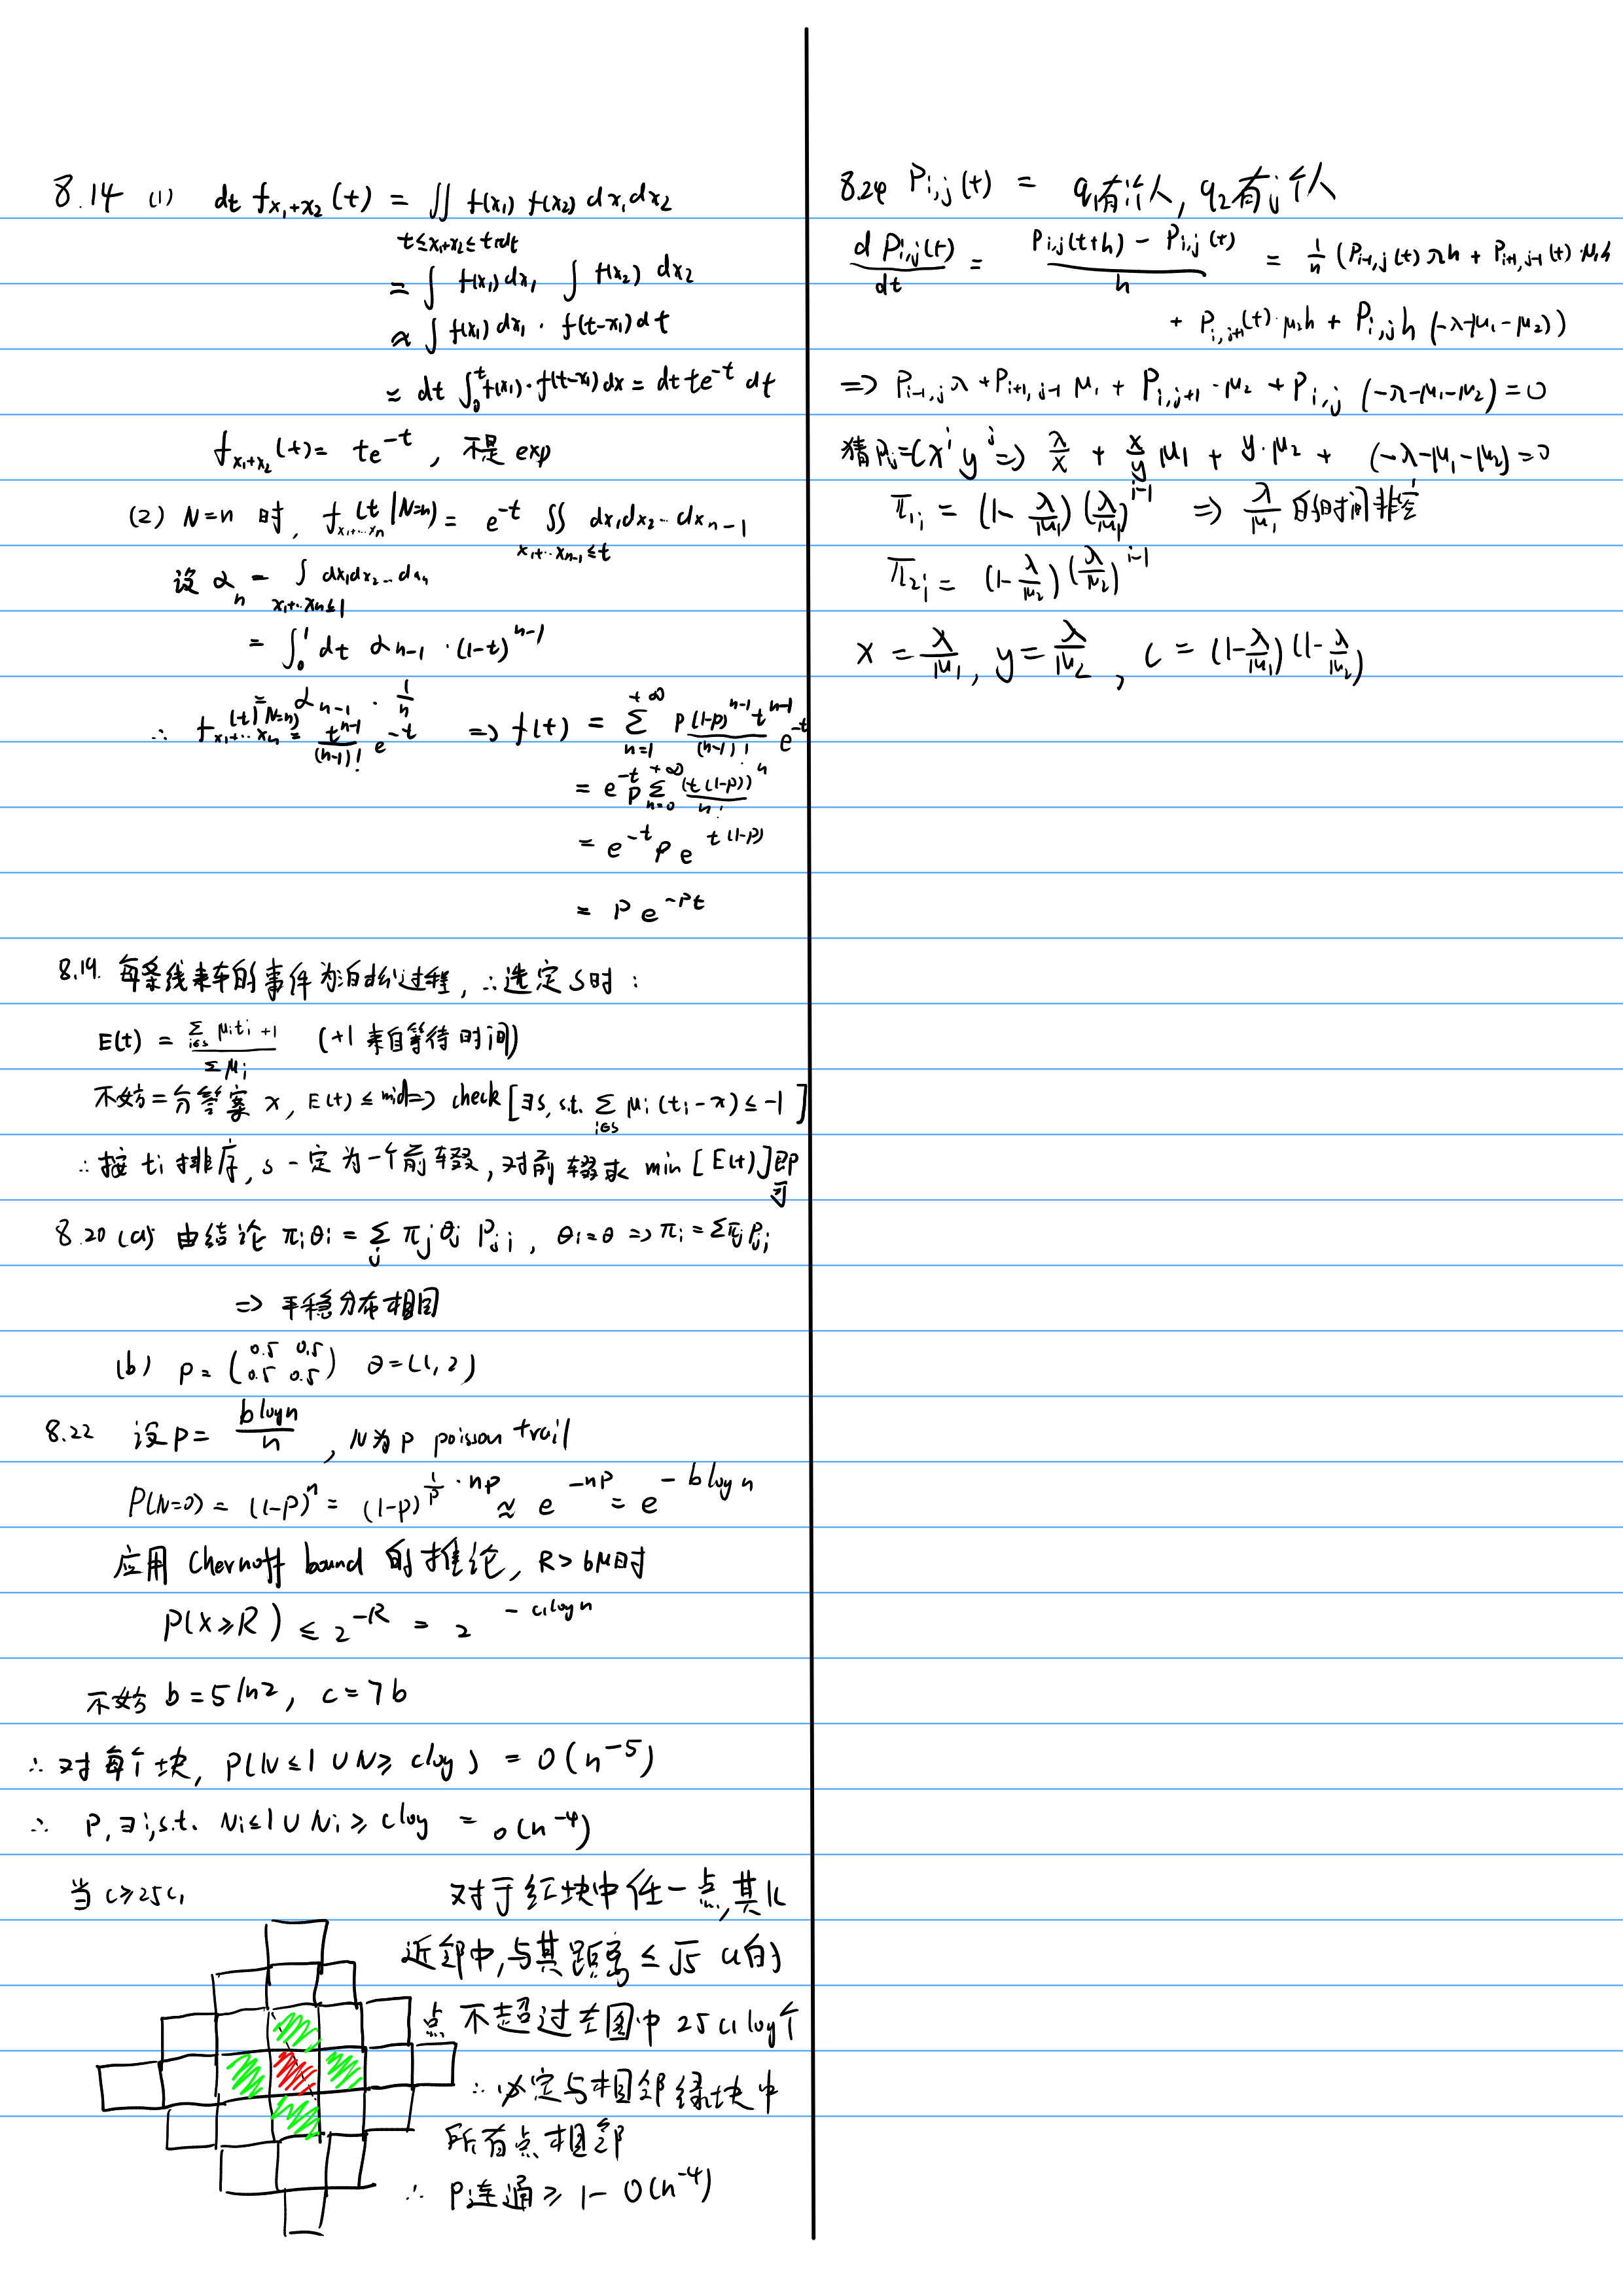 8.14 (1) dt f_{x₁+x₂}(t) = ∬ f(x₁) f(x₂) dx₁dx₂
t≤x₁+x₂≤t+dt
= ∫ f(x₁)dx₁ ∫ f(x₂) dx₂
≈ ∫ f(x₁) dx₁ · f(t-x₁)dt
≈ dt ∫₀^t f(x₁)·f(t-x₁)dx = dt te^{-t} dt
f_{x₁+x₂}(t) = te^{-t}, 不是 exp
(2) N=n 时, f_{x₁+…x_n}(t|N=n) = e^{-t} ∬ dx₁dx₂…dx_{n-1}
x₁+…x_{n-1}≤t
设 α_n = ∫ dx₁dx₂…dx_n
x₁+…x_n≤1
= ∫₀¹ dt α_{n-1} · (1-t)^{n-1}
= α_{n-1} · 1/n
∴ f_{x₁+…x_n}(t|N=n) = t^{n-1}/(n-1)! e^{-t} ⇒ f(t) = Σ_{n=1}^{+∞} p(1-p)^{n-1}t^{n-1}/(n-1)! e^{-t}
= e^{-t} p Σ_{n=0}^{+∞} (t(1-p))^n/n!
= e^{-t} p e^{t(1-p)}
= p e^{-pt}
8.19. 每条线来车的事件为泊松过程, ∴选定 S时:
E(t) = (Σ_{i∈S} μ_i t_i + 1)/(Σμ_i) (+1 来自等待时间)
不妨二分答案 x, E(t) ≤ mid ⇒ check [∃S, s.t. Σ_{i∈S} μ_i (t_i - x) ≤ -1]
∴ 按 t_i 排序, S 一定为一个前缀, 对前缀求 min [E(t)] 即可
8.20 (a) 由结论 π_iθ_i = Σ_j π_j θ_j P_{ji}, θ_i=θ ⇒ π_i = Σπ_j P_{ji}
⇒ 平稳分布相同
(b) P = (0.5 0.5
0.5 0.5) θ=(1,2)
8.22 设 p = blogn/n, N为 p poisson trail
P(N=0) = (1-p)^n = (1-p)^{1/p · np} ≈ e^{-np} = e^{-blogn}
应用 Chernoff bound 的推论, R>6μ时
P(X≥R) ≤ 2^{-R} = 2^{-c₁logn}
不妨 b=5ln2, c=7b
∴ 对每个块, P(N≤1 ∪ N≥ clog) = O(n^{-5})
∴ P, ∃i, s.t. N_i≤1 ∪ N_i ≥ clog = O(n^{-4})
当 c≥25c₁
对于红块中任一点, 其k
近邻中, 与其距离 ≤ √5 a的
点 不超过左图中 25c₁log个
∴ 必定与相邻绿块中
所有点相邻
∴ P连通 ≥ 1-O(n^{-4})
8.24 P_{i,j}(t) = q₁有i个人, q₂有j个人
dP_{i,j}(t)/dt = (P_{i,j}(t+h) - P_{i,j}(t))/h = 1/h (P_{i-1,j}(t)λh + P_{i+1,j-1}(t)·μ₁h
+ P_{i,j+1}(t)·μ₂h + P_{i,j}h (-λ-μ₁-μ₂))
⇒ P_{i-1,j}λ + P_{i+1,j-1} μ₁ + P_{i,j+1}·μ₂ + P_{i,j} (-λ-μ₁-μ₂) = 0
猜 P_{ij} = Cx^i y^j ⇒ λ/x + x/y μ₁ + y·μ₂ + (-λ-μ₁-μ₂) = 0
π_{1i} = (1-λ/μ₁)(λ/μ₁)^{i-1} ⇒ λ/μ₁ 的时间非空
π_{2i} = (1-λ/μ₂)(λ/μ₂)^{i-1}
x = λ/μ₁, y = λ/μ₂, C = (1-λ/μ₁)(1-λ/μ₂)